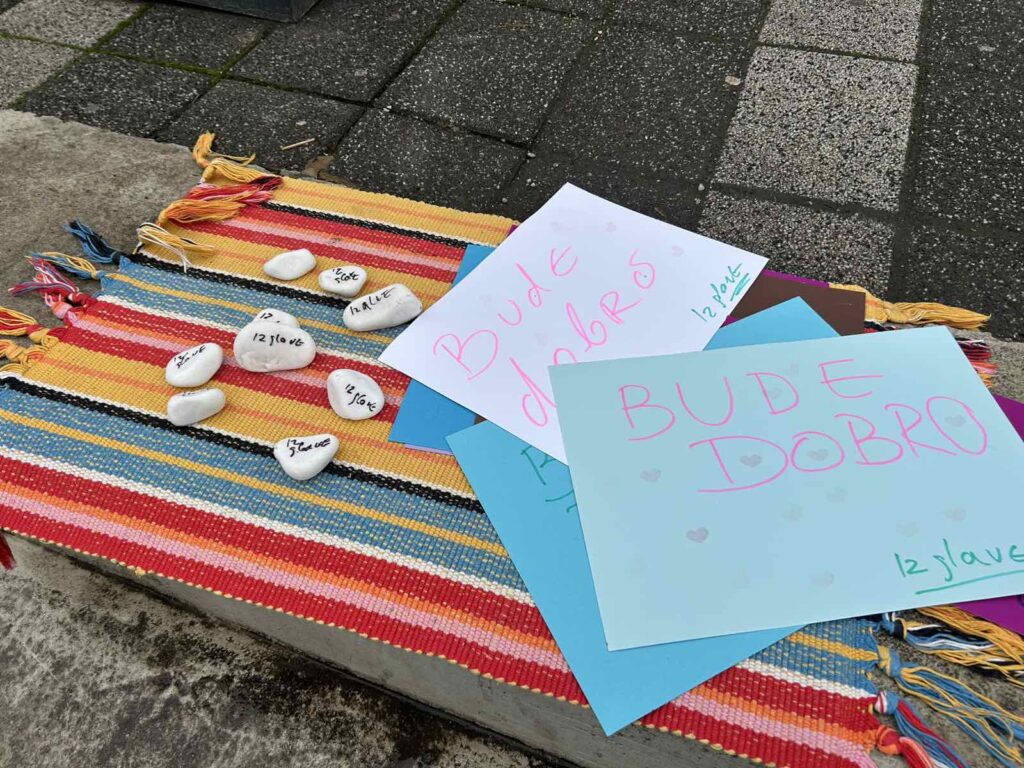 Bude
dobro
12 glave
BUDE
DOBRO
12 glave
12 glave
12 glave
12 glave
12 glave
12 glave
12 glave